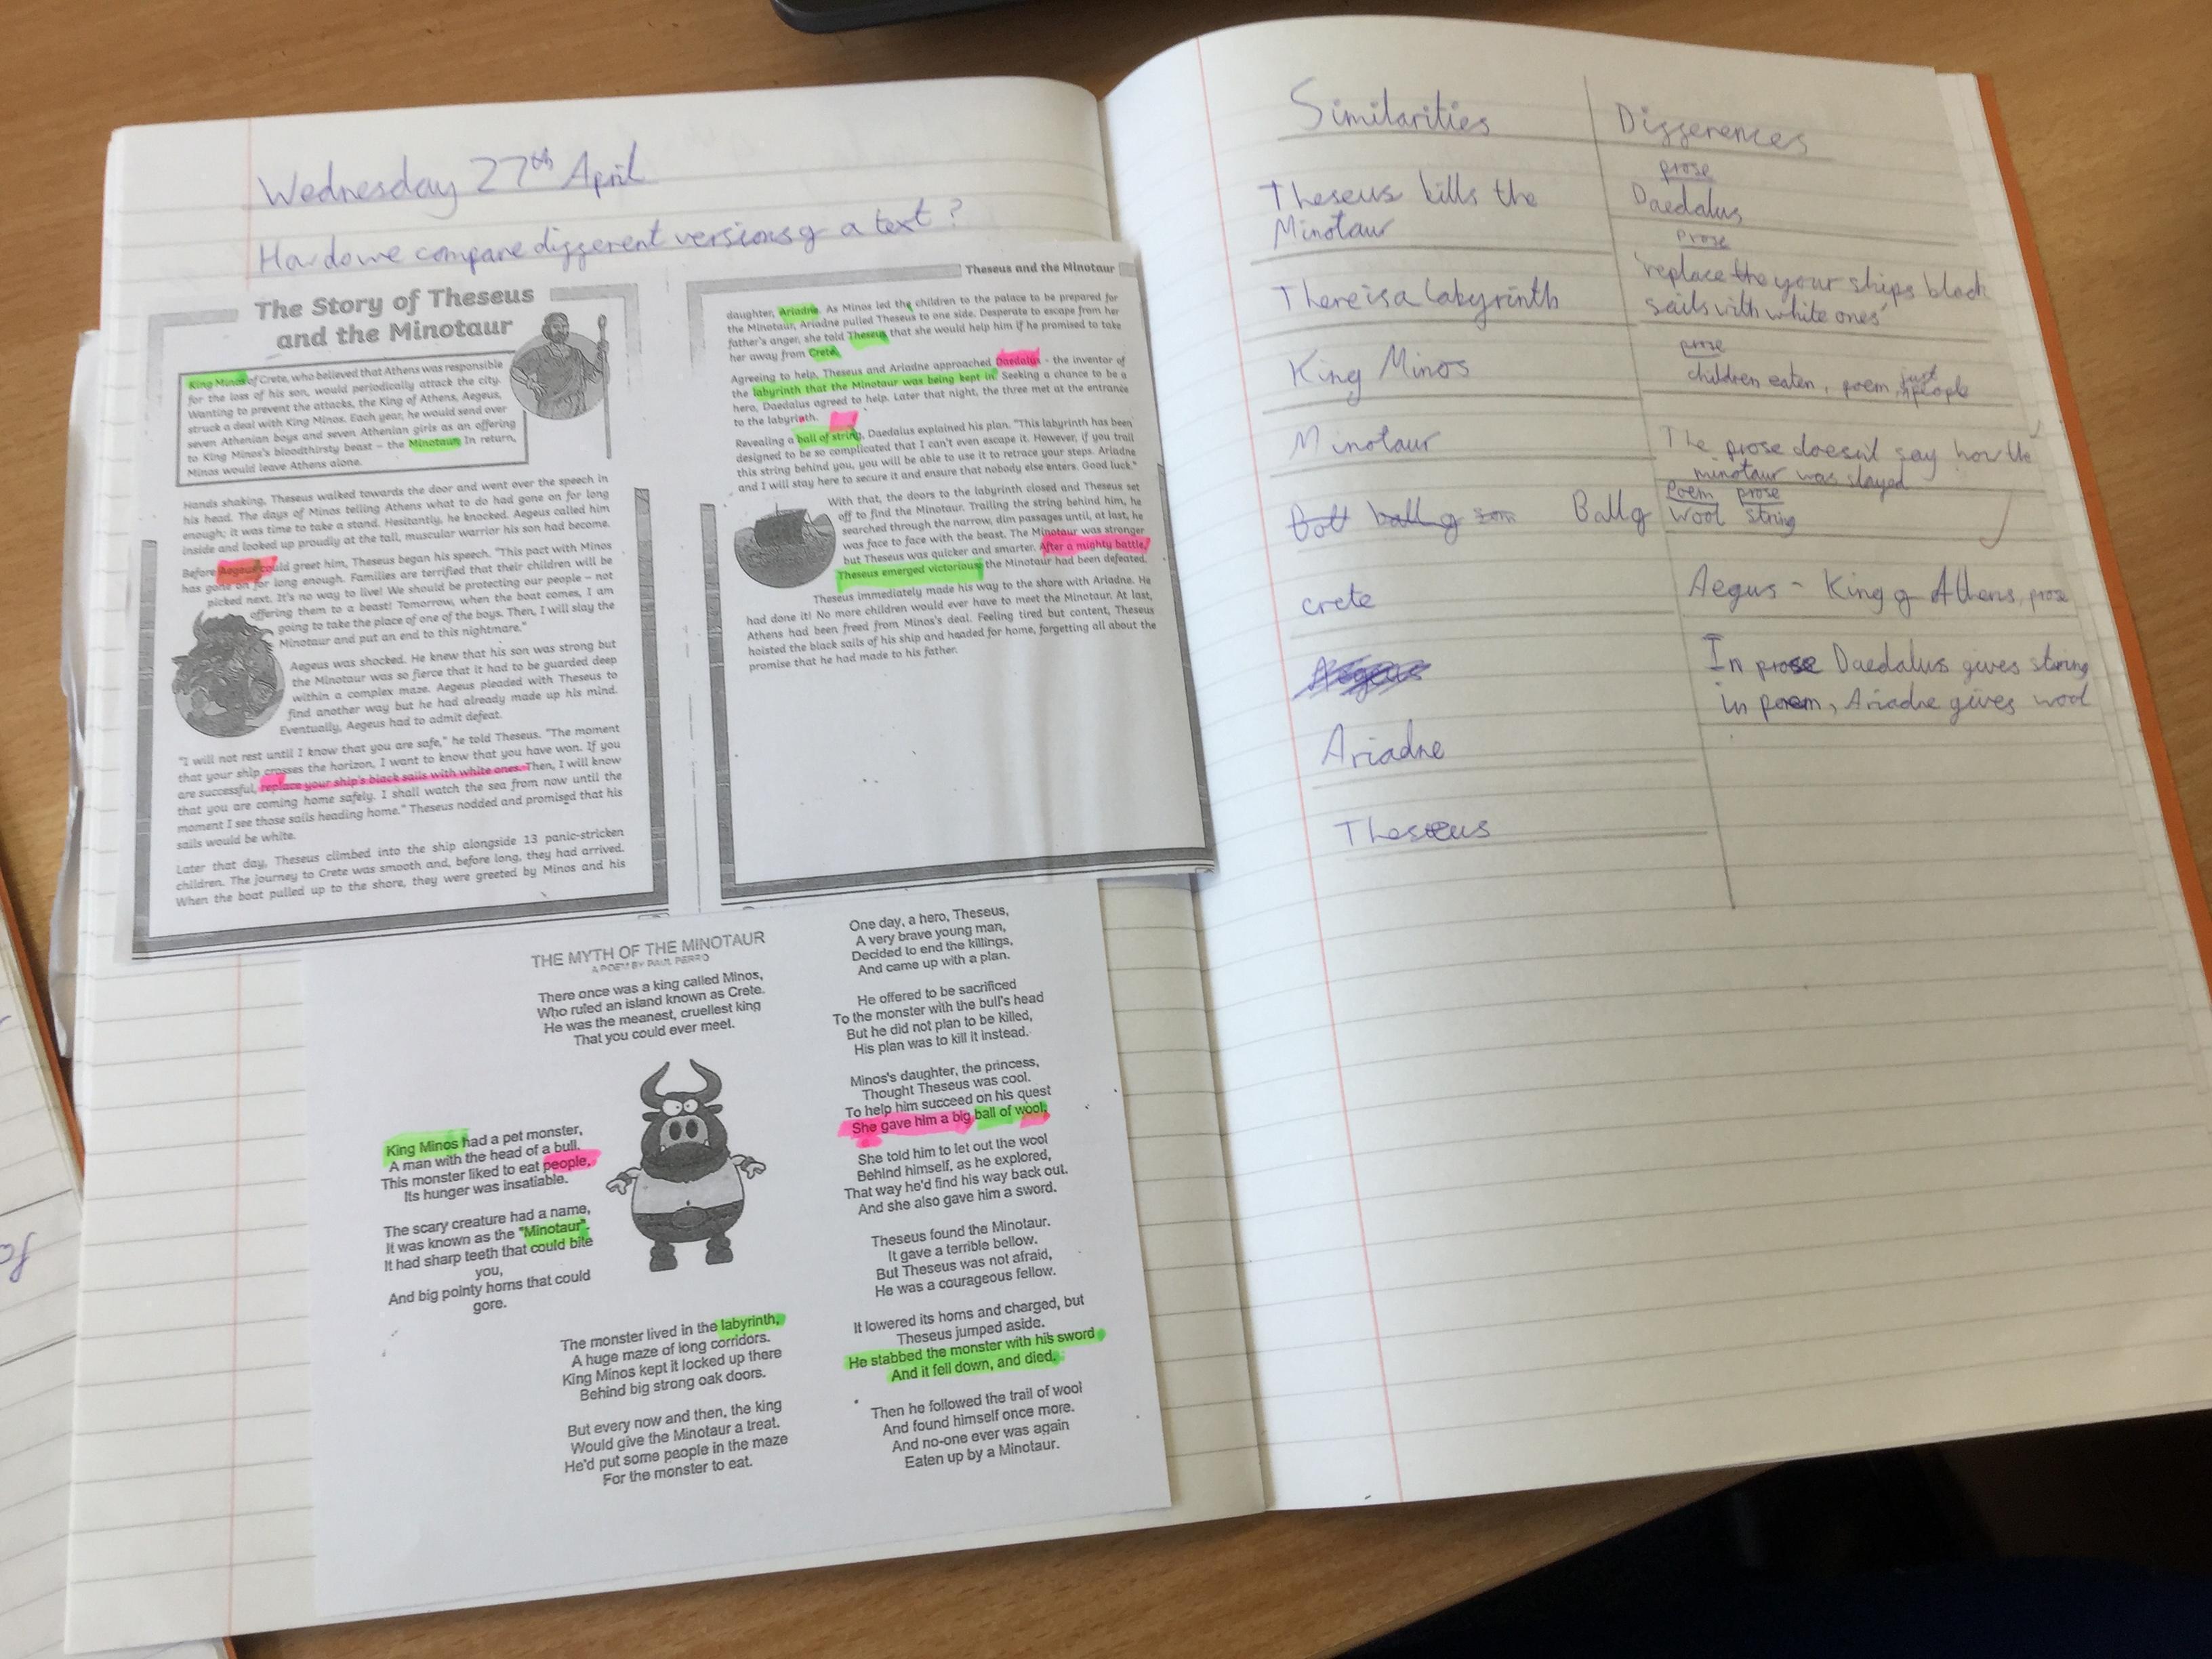 Wednesday 27th April
How do we compare different versions of a text?
The Story of Theseus
and the Minotaur
King Minos of Crete, who believed that Athens was responsible
for the loss of his son, would periodically attack the city.
Wanting to prevent the attacks, the King of Athens, Aegeus,
struck a deal with King Minos. Each year, he would send over
seven Athenian boys and seven Athenian girls as an offering
to King Minos's bloodthirsty beast – the Minotaur. In return,
Minos would leave Athens alone.
Hands shaking, Theseus walked towards the door and went over the speech in
his head. The days of Minos telling Athens what to do had gone on for long
enough; it was time to take a stand. Hesitantly, he knocked. Aegeus called him
inside and looked up proudly at the tall, muscular warrior his son had become.
Before Aegeus could greet him, Theseus began his speech. "This pact with Minos
has gone on for long enough. Families are terrified that their children will be
picked next. It's no way to live! We should be protecting our people – not
offering them to a beast! Tomorrow, when the boat comes, I am
going to take the place of one of the boys. Then, I will slay the
Minotaur and put an end to this nightmare."
Aegeus was shocked. He knew that his son was strong but
the Minotaur was so fierce that it had to be guarded deep
within a complex maze. Aegeus pleaded with Theseus to
find another way but he had already made up his mind.
Eventually, Aegeus had to admit defeat.
"I will not rest until I know that you are safe," he told Theseus. "The moment
that your ship crosses the horizon, I want to know that you have won. If you
are successful, replace your ship's black sails with white ones. Then, I will know
that you are coming home safely. I shall watch the sea from now until the
moment I see those sails heading home." Theseus nodded and promised that his
sails would be white.
Later that day, Theseus climbed into the ship alongside 13 panic-stricken
children. The journey to Crete was smooth and, before long, they had arrived.
When the boat pulled up to the shore, they were greeted by Minos and his
Theseus and the Minotaur
daughter, Ariadne. As Minos led the children to the palace to be prepared for
the Minotaur, Ariadne pulled Theseus to one side. Desperate to escape from her
father's anger, she told Theseus that she would help him if he promised to take
her away from Crete.
Agreeing to help, Theseus and Ariadne approached Daedalus - the inventor of
the labyrinth that the Minotaur was being kept in. Seeking a chance to be a
hero, Daedalus agreed to help. Later that night, the three met at the entrance
to the labyrinth.
Revealing a ball of string, Daedalus explained his plan. "This labyrinth has been
designed to be so complicated that I can't even escape it. However, if you trail
this string behind you, you will be able to use it to retrace your steps. Ariadne
and I will stay here to secure it and ensure that nobody else enters. Good luck."
With that, the doors to the labyrinth closed and Theseus set
off to find the Minotaur. Trailing the string behind him, he
searched through the narrow, dim passages until, at last, he
was face to face with the beast. The Minotaur was stronger
but Theseus was quicker and smarter. After a mighty battle,
Theseus emerged victorious; the Minotaur had been defeated.
Theseus immediately made his way to the shore with Ariadne. He
had done it! No more children would ever have to meet the Minotaur. At last,
Athens had been freed from Minos's deal. Feeling tired but content, Theseus
hoisted the black sails of his ship and headed for home, forgetting all about the
promise that he had made to his father.
THE MYTH OF THE MINOTAUR
A POEM BY PAUL PERRO
There once was a king called Minos,
Who ruled an island known as Crete.
He was the meanest, cruellest king
That you could ever meet.
King Minos had a pet monster,
A man with the head of a bull.
This monster liked to eat people,
Its hunger was insatiable.
The scary creature had a name,
It was known as the "Minotaur".
It had sharp teeth that could bite
you,
And big pointy horns that could
gore.
The monster lived in the labyrinth,
A huge maze of long corridors.
King Minos kept it locked up there
Behind big strong oak doors.
But every now and then, the king
Would give the Minotaur a treat.
He'd put some people in the maze
For the monster to eat.
One day, a hero, Theseus,
A very brave young man,
Decided to end the killings,
And came up with a plan.
He offered to be sacrificed
To the monster with the bull's head
But he did not plan to be killed,
His plan was to kill it instead.
Minos's daughter, the princess,
Thought Theseus was cool.
To help him succeed on his quest
She gave him a big ball of wool.
She told him to let out the wool
Behind himself, as he explored,
That way he'd find his way back out.
And she also gave him a sword.
Theseus found the Minotaur.
It gave a terrible bellow.
But Theseus was not afraid,
He was a courageous fellow.
It lowered its horns and charged, but
Theseus jumped aside.
He stabbed the monster with his sword
And it fell down, and died.
Then he followed the trail of wool
And found himself once more.
And no-one ever was again
Eaten up by a Minotaur.
Similarities
Theseus kills the
Minotaur
There is a labyrinth
King Minos
Minotaur
ball of Ball of
crete
Ariadne
Theseus
Differences
prose
Daedalus
prose
'replace the your ships black
sails with white ones'
prose
children eaten, poem, just people
The prose doesn't say how the
minotaur was slayed
Poem prose
wool string
Aegus - King of Athens, prose
In prose Daedalus gives string
in poem, Ariadne gives wool